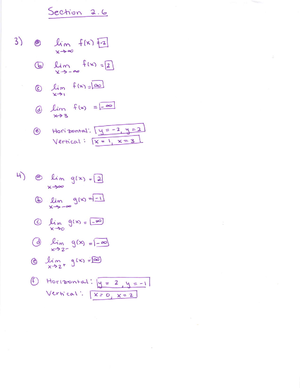 Section 2.6
3) a lim x→∞ f(x) = -2
b lim x→-∞ f(x) = 2
c lim x→1 f(x) = ∞
d lim x→3 f(x) = -∞
e Horizontal: y = -2, y = 2
Vertical: x = 1, x = 3
4) a lim x→∞ g(x) = 2
b lim x→-∞ g(x) = -1
c lim x→0 g(x) = -∞
d lim x→2⁻ g(x) = -∞
e lim x→2⁺ g(x) = ∞
f Horizontal: y = 2, y = -1
Vertical: x = 0, x = 2